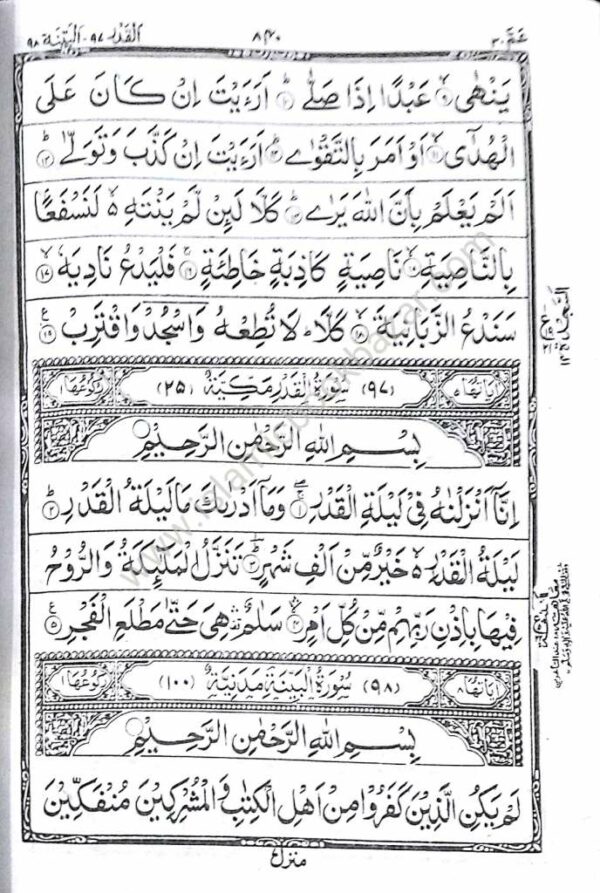 عَمَّ ٣٠
٨٤٠
اَلْقَدْر ٩٧ - اَلْبَيِّنَة ٩٨
يَنْهٰى ۙ ٩ عَبْدًا اِذَا صَلّٰى ؕ ١٠ اَرَءَيْتَ اِنْ كَانَ عَلَى
الْهُدٰٓى ۙ ١١ اَوْ اَمَرَ بِالتَّقْوٰى ؕ ١٢ اَرَءَيْتَ اِنْ كَذَّبَ وَتَوَلّٰى ؕ ١٣
اَلَمْ يَعْلَمْ بِاَنَّ اللّٰهَ يَرٰى ؕ ١٤ كَلَّا لَئِنْ لَّمْ يَنْتَهِ ۙ لَنَسْفَعًۢا
بِالنَّاصِيَةِ ۙ ١٥ نَاصِيَةٍ كَاذِبَةٍ خَاطِئَةٍ ۚ ١٦ فَلْيَدْعُ نَادِيَهٗ ۙ ١٧
سَنَدْعُ الزَّبَانِيَةَ ۙ ١٨ كَلَّا ؕ لَا تُطِعْهُ وَاسْجُدْ وَاقْتَرِبْ ١٩
اٰيَاتُهَا ٥
(٩٧) سُوْرَةُ الْقَدْرِ مَكِّيَّةٌ (٢٥)
رُكُوْعُهَا ١
بِسْمِ اللّٰهِ الرَّحْمٰنِ الرَّحِيْمِ
اِنَّآ اَنْزَلْنٰهُ فِىْ لَيْلَةِ الْقَدْرِ ١ وَمَآ اَدْرٰىكَ مَا لَيْلَةُ الْقَدْرِ ؕ ٢
لَيْلَةُ الْقَدْرِ ۙ خَيْرٌ مِّنْ اَلْفِ شَهْرٍ ؕ ٣ تَنَزَّلُ الْمَلٰٓئِكَةُ وَالرُّوْحُ
فِيْهَا بِاِذْنِ رَبِّهِمْ مِّنْ كُلِّ اَمْرٍ ۙ ٤ سَلٰمٌ ۛ هِىَ حَتّٰى مَطْلَعِ الْفَجْرِ ٥
اٰيَاتُهَا ٨
(٩٨) سُوْرَةُ الْبَيِّنَةِ مَدَنِيَّةٌ (١٠٠)
رُكُوْعُهَا ١
بِسْمِ اللّٰهِ الرَّحْمٰنِ الرَّحِيْمِ
لَمْ يَكُنِ الَّذِيْنَ كَفَرُوْا مِنْ اَهْلِ الْكِتٰبِ وَالْمُشْرِكِيْنَ مُنْفَكِّيْنَ
منزل
السَّجْدَة ١٤